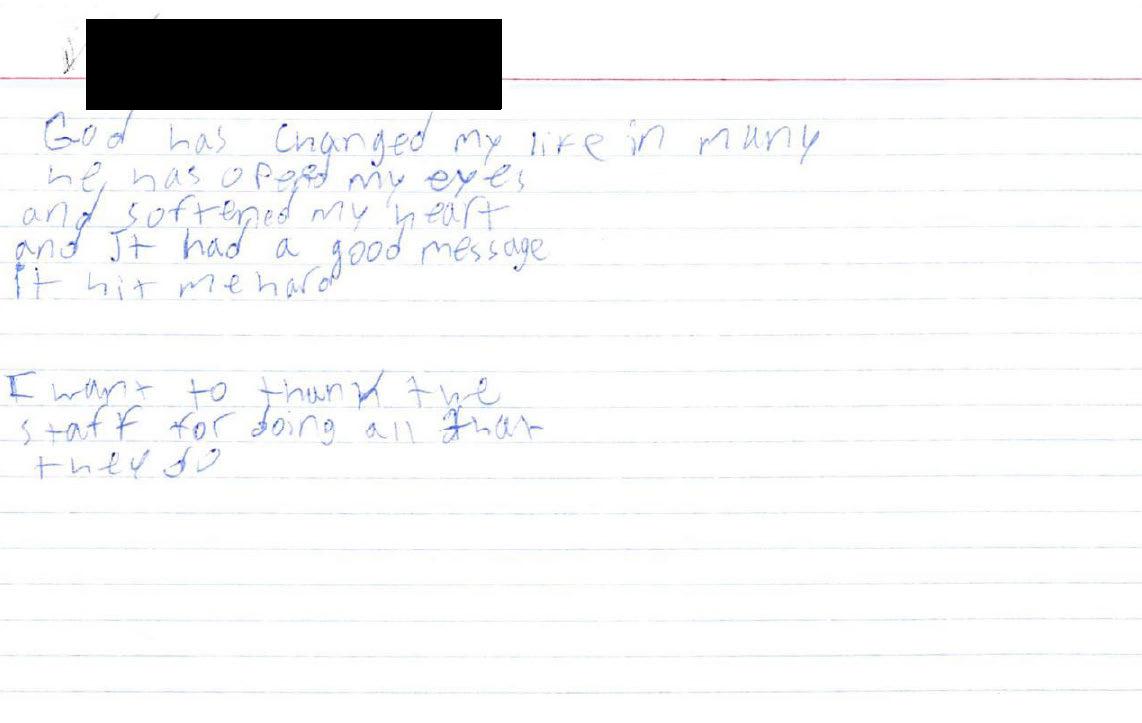 God has changed my life in many
he has oped my eyes
and softened my heart
and It had a good message
it hit me hard
I want to thank the
staff for doing all that
they do